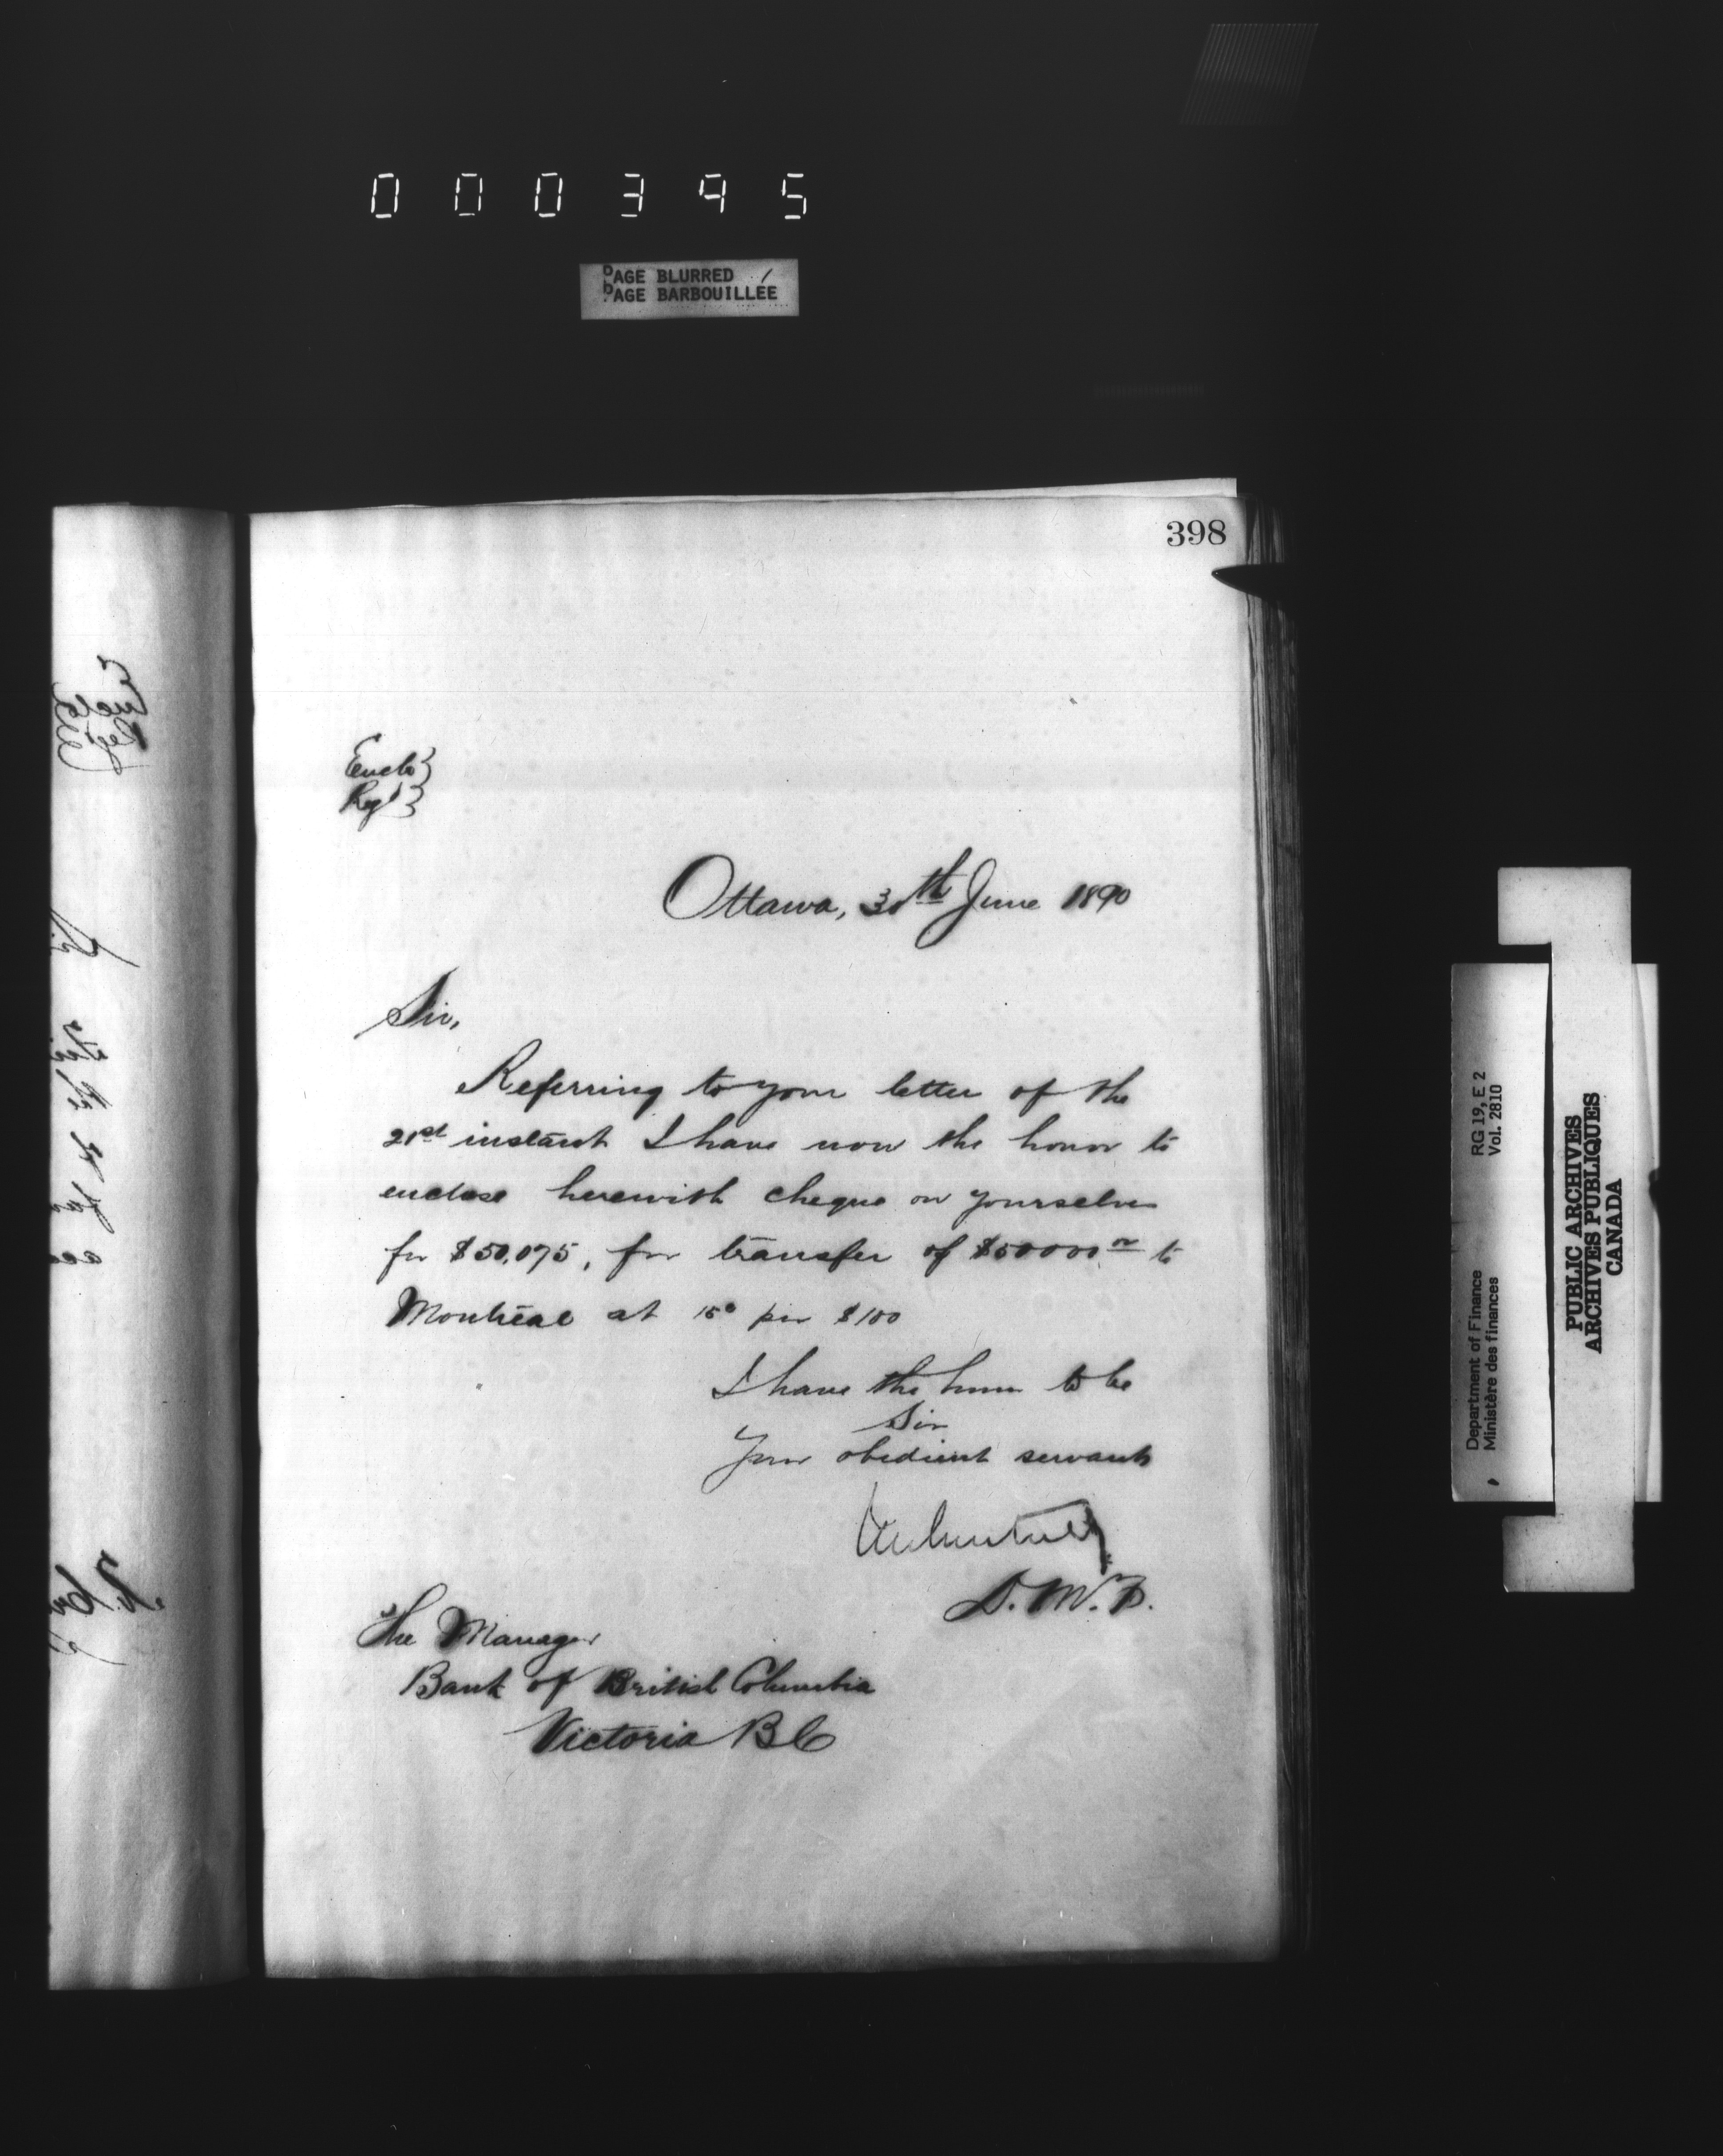 000395
PAGE BLURRED
PAGE BARBOUILLÉE
398
Enclo}
Regd}
Ottawa, 30th June 1890
Sir,
Referring to your letter of the
21st instant I have now the honor to
enclose herewith cheque on yourselves
for $50,075, for transfer of $50000 00 to
Montreal at 15c per $100
I have the honor to be
Sir
Your obedient servant
D.M.F.
The Manager
Bank of British Columbia
Victoria B C
Department of Finance RG 19, E 2
Ministère des finances Vol. 2810
PUBLIC ARCHIVES
ARCHIVES PUBLIQUES
CANADA